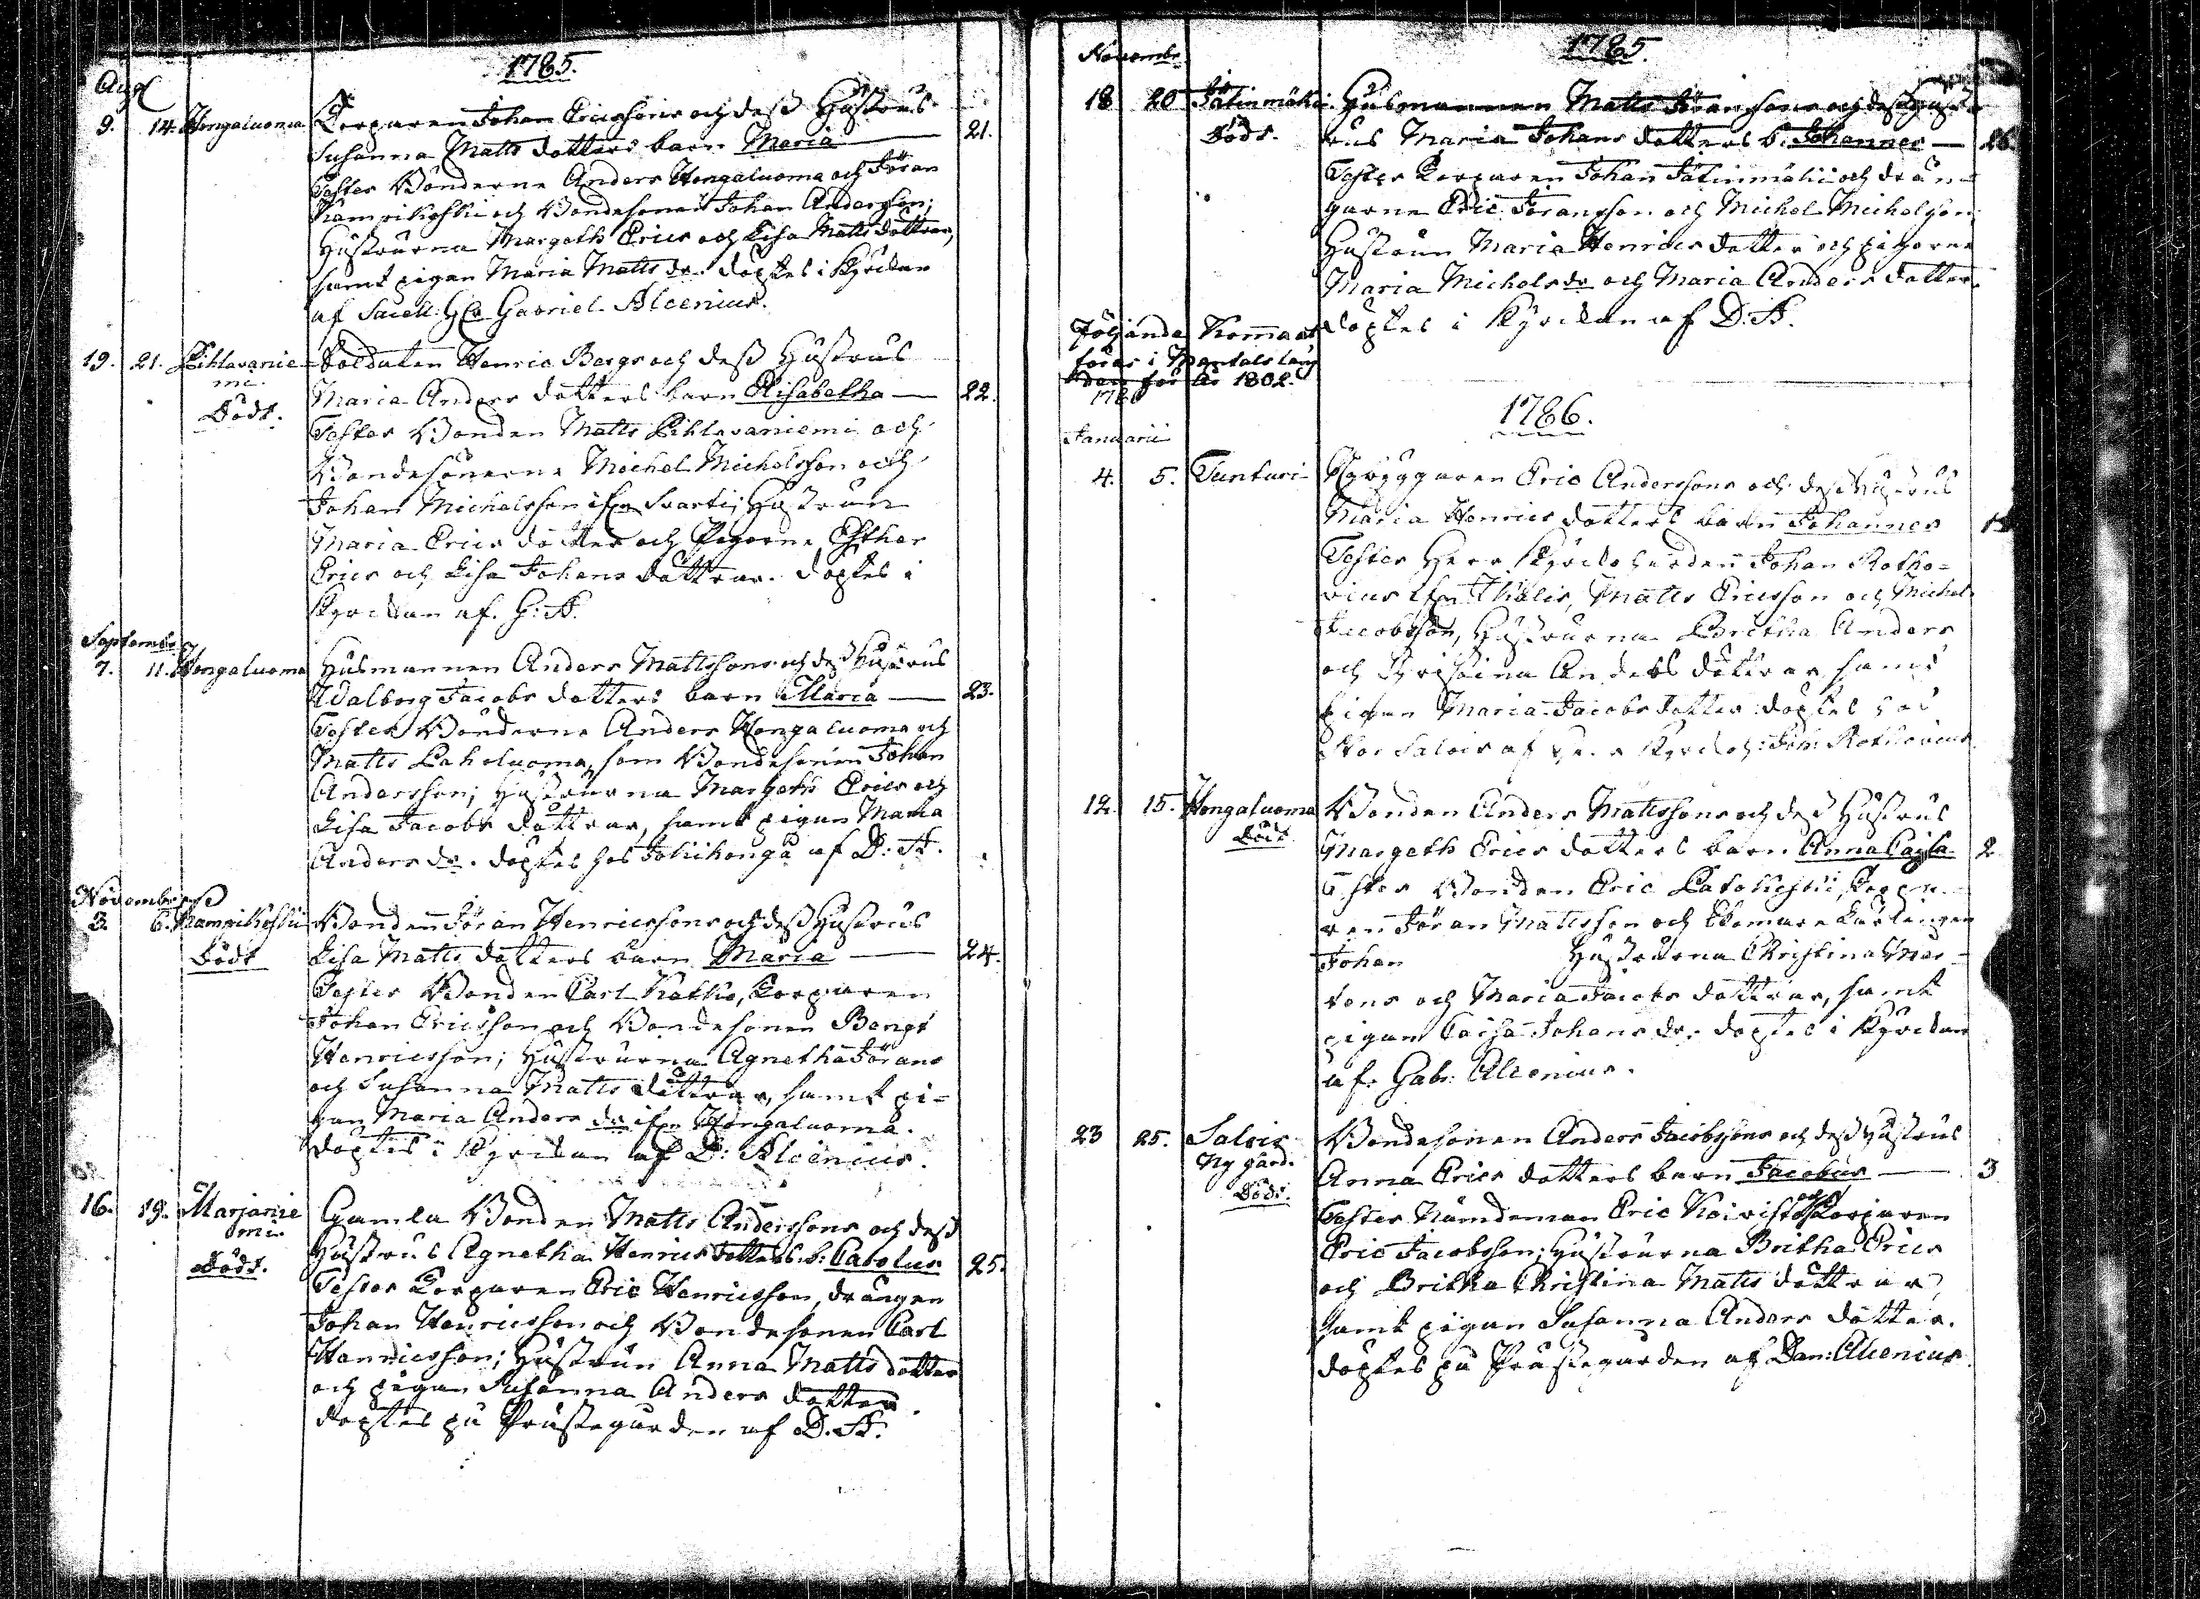 1785.
Aug
9. 14. Hongaluoma Torparen Johan Ericssons och dess Hustrus
Susanna Matts dotters barn Maria 21.
Testes Bönderne Anders Hongaluoma och Jöran
Kamrikoski och Bondesonen Johan Andersson;
Hustrurna Margeth Erics och Lisa Matts döttrar,
samt pigan Maria Matts dr. döptes i Kyrckan
af Sacell. Gabriel Alcenius.
19. 21. Pihlavanie Soldaten Henric Bergs och dess Hustrus
mi.
Maria Anders dotters barn Elisabetha 22.
Dödt.
Testes Bonden Matts Pihlavaniemi och
Bondesönerne Michel Michelsson och
Johan Michelsson ifrn Svarti; Hustrun
Maria Erics dotter och Pigorne Esther
Erics och Lisa Johans döttrar. döptes i
Kyrckan af. G: A.
Septembr
7. 11. Hongaluoma Husmannen Anders Mattssons och dess Hustrus
Walborg Jacobs dotters barn Maria 23.
Testes Bönderne Anders Hongaluoma och
Matts Paholuoma, som Bondesonen Johan
Andersson; Hustrurna Margeth Erics och
Lisa Jacobs döttrar, samt pigan Maria
Anders dr. döptes hos Jokihonga af D: A.
November
3. 6. Kamrikoski Bonden Jöran Henricssons och dess Hustrus
Dödt Lisa Matts dotters barn Maria 24.
Testes Bonden Carl Katko, Torparen
Johan Ericsson och Bondesonen Bengt
Henricsson; Hustrurna Agnetha Jörans
och Susanna Matts döttrar, samt pi-
gan Maria Anders dr ifrn Hongaluoma.
döptes i Kyrckan af D: Alcenius.
16. 19. Marjanie Gamla Bonden Matts Anderssons och dess
mi.
Hustrus Agnetha Henrics dotters b: Carolus 25.
Dödt.
Testes Torparen Eric Henricsson, drängen
Johan Henricsson och Bondesonen Carl
Henricsson; Hustrun Anna Matts dotter
och pigan Susanna Anders dotter
döptes på Prästegården af D. A.
1785.
Novembr
18 20 Jätinmäki Husmannen Matts Jöranssons och dess Hust-
Dödt. rus Maria Johans dotters b. Johannes 26.
Testes Torparen Johan Jätinmäki och drän-
garne Eric Jöransson och Michel Michelsson
Hustrun Maria Henrics dotter och pigorne
Maria Michels dr och Maria Anders dotter.
döptes i Kyrckan af D: A.
Följande Komma at
föras i Mantals läng
den för År 1802.
1786.
1786
Januarii
4. 5. Tunturi Nybyggaren Eric Anderssons och dess Hustrus
Maria Henrics dotters barn Johannes 1
Testes Herr Kyrckoherden Johan Rotho-
vius ifrn Thölis, Matts Ericsson och Michel
Jacobsson, Hustrurna Britha Anders
och Christina Anders döttrar samt
Pigan Maria Jacobs dotter döptes hos
Stor Salois af Herr Kyrckoh: Joh: Rothovius.
12. 15. Hongaluoma Bonden Anders Mattssons och dess Hustrus
Dödt
Margeth Erics dotters barn Anna Caisa 2
Testes Bonden Eric Latokoski, Torpa-
ren Jöran Mattsson och
Johan Hustrurna Christina Mår-
tens och Maria Jacobs döttrar, samt
pigan Caisa Johans dr. döptes i Kyrckan
af. Gabr: Alcenius.
23 25. Salois Bondesonen Anders Jacobssons och dess Hustrus
Nygård.
Anna Erics dotters barn Jacobus 3
Dödt.
Testes Nämdeman Eric Koivisto och Torparen
Eric Jacobsson; Hustrurna Britha Erics
och Britha Christina Matts döttrar,
samt pigan Susanna Anders dotter.
döptes på Prästegården af Dan: Alcenius.